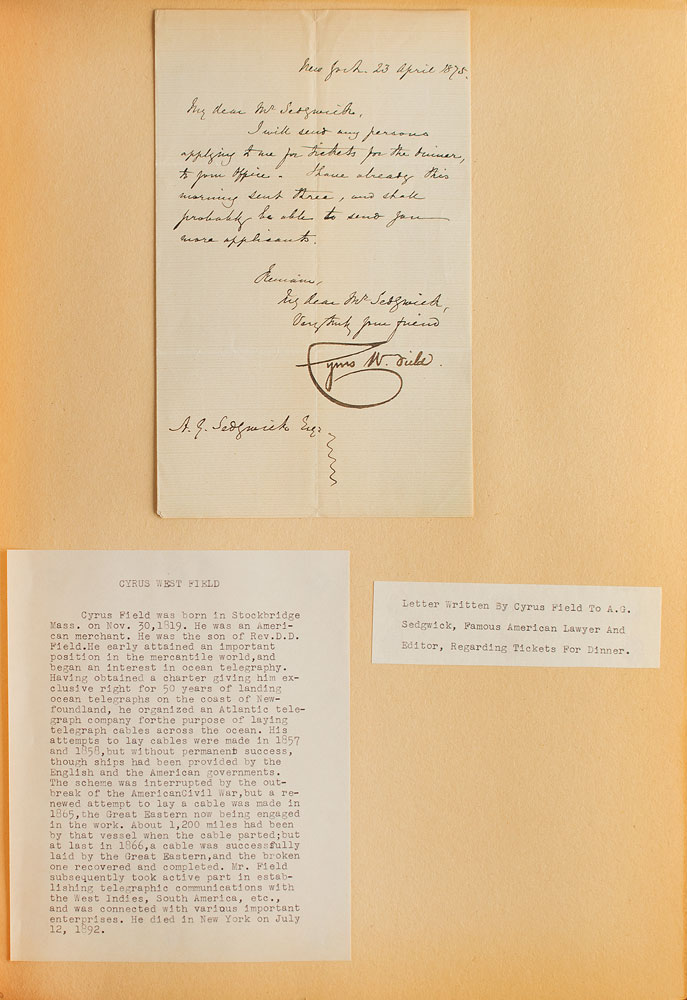 New York. 23 April 1875.
My dear Mr Sedgwick,
I will send any persons
applying to me for tickets for the dinner,
to your office. I have already this
morning sent three, and shall
probably be able to send you
more applicants.
Remain,
My dear Mr Sedgwick,
Very truly your friend
Cyrus W. Field.
A. G. Sedgwick Esq:
CYRUS WEST FIELD
Cyrus Field was born in Stockbridge
Mass. on Nov. 30,1819. He was an Ameri-
can merchant. He was the son of Rev.D.D.
Field.He early attained an important
position in the mercantile world,and
began an interest in ocean telegraphy.
Having obtained a charter giving him ex-
clusive right for 50 years of landing
ocean telegraphs on the coast of New-
foundland, he organized an Atlantic tele-
graph company forthe purpose of laying
telegraph cables across the ocean. His
attempts to lay cables were made in 1857
and 1858,but without permanent success,
though ships had been provided by the
English and the American governments.
The scheme was interrupted by the out-
break of the AmericanCivil War,but a re-
newed attempt to lay a cable was made in
1865,the Great Eastern now being engaged
in the work. About 1,200 miles had been
by that vessel when the cable parted;but
at last in 1866,a cable was successfully
laid by the Great Eastern,and the broken
one recovered and completed. Mr. Field
subsequently took active part in estab-
lishing telegraphic communications with
the West Indies, South America, etc.,
and was connected with various important
enterprises. He died in New York on July
12, 1892.
Letter Written By Cyrus Field To A.G.
Sedgwick, Famous American Lawyer And
Editor, Regarding Tickets For Dinner.